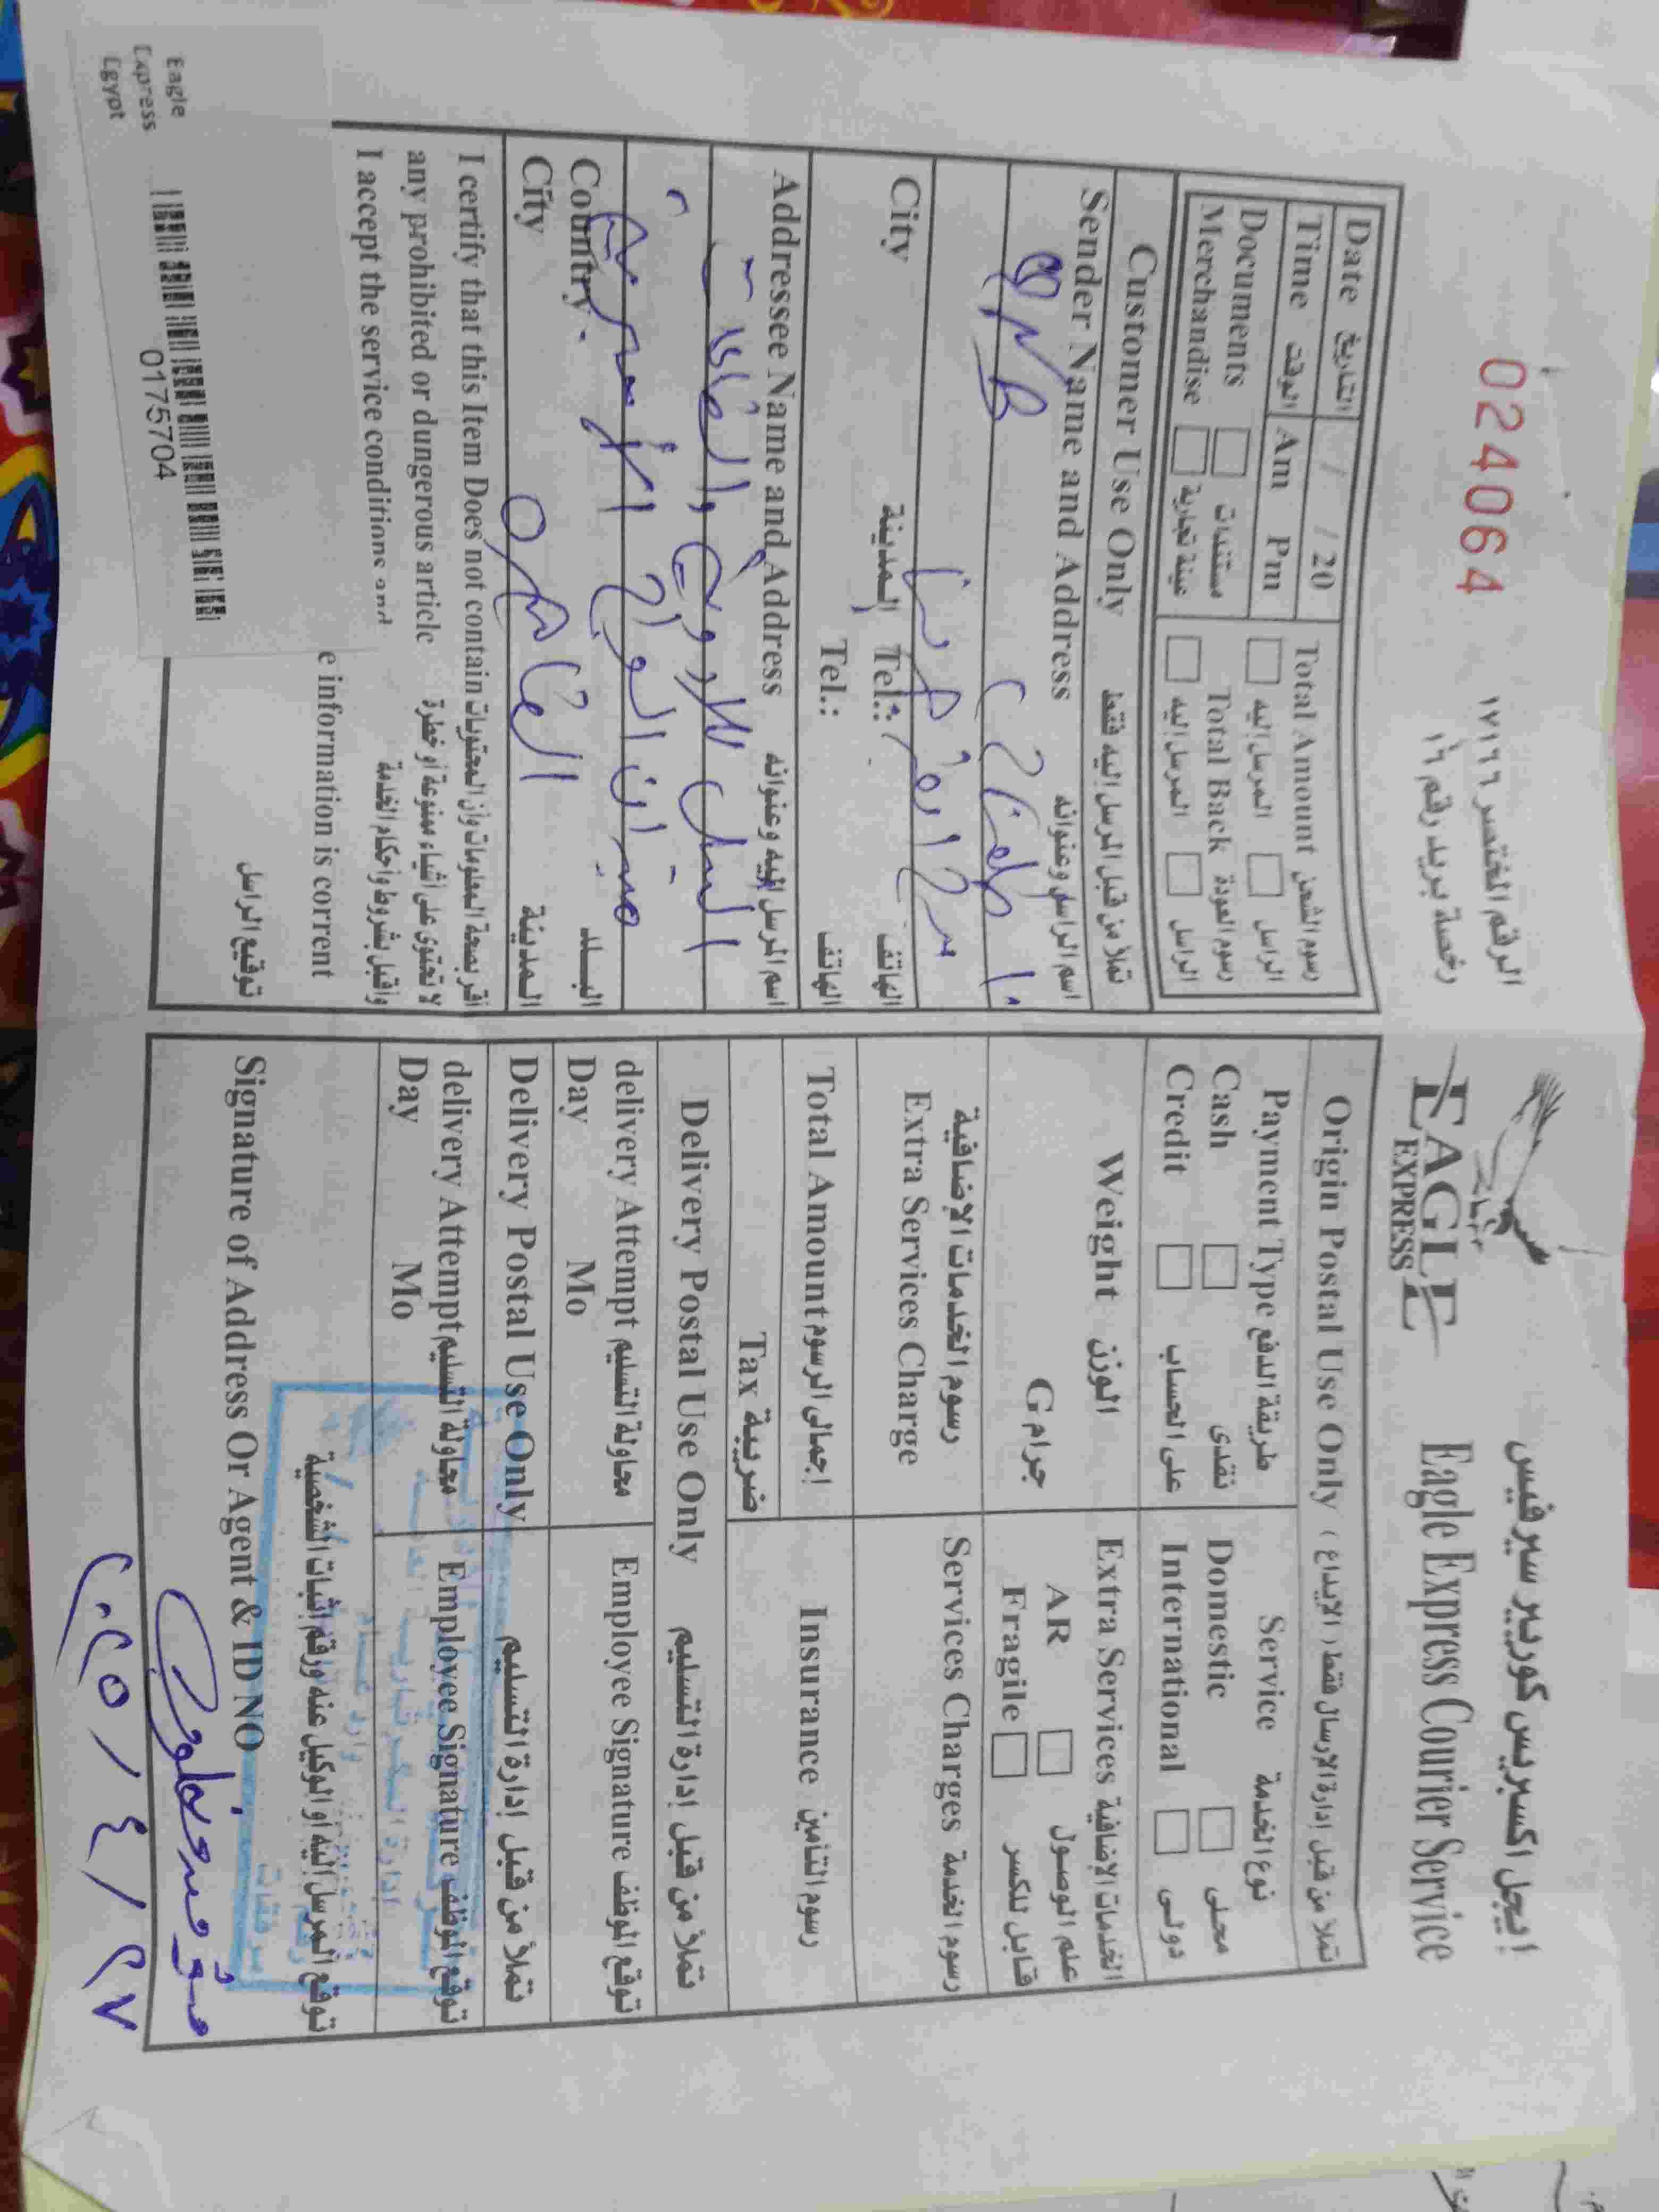 024064
الرقم المختصر ١٧١٦٦
رخصة بريد رقم ١٦
EAGLE
EXPRESS
ايجل اكسبريس كوريير سيرفيس
Eagle Express Courier Service
Date التاريخ / / 20
Time الوقت Am Pm
Documents مستندات
Merchandise عينة تجارية
Total Amount رسوم الشحن
المرسل اليه الراسل
Total Back رسوم العودة
المرسل اليه الراسل
Customer Use Only تملأ من قبل المرسل إليه فقط
Sender Name and Address اسم الراسل وعنوانه
QNB
City المدينة Tel.: الهاتف
Tel.: الهاتف
Addressee Name and Address اسم المرسل إليه وعنوانه
Country البلد
City المدينة
القاهرة
I certify that this Item Does not contain
any prohibited or dungerous article
I accept the service conditions and
e information is correct
أقر بصحة المعلومات وأن المحتويات
لا تحتوى على أشياء ممنوعة أو خطرة
وأقبل بشروط وأحكام الخدمة
توقيع الراسل
Eagle
Express
Egypt
0175704
Origin Postal Use Only ( تملأ من قبل إدارة الارسال فقط ( الايداع
Payment Type طريقة الدفع
Cash نقدى
Credit على الحساب
Service نوع الخدمة
Domestic محلى
International دولى
Weight الوزن
G جرام
Extra Services الخدمات الإضافية
AR علم الوصول
Fragile قابل للكسر
رسوم الخدمات الإضافية
Extra Services Charge
Services Charges رسوم الخدمة
Total Amount إجمالى الرسوم
Insurance رسوم التأمين
Tax ضريبة
Delivery Postal Use Only تملأ من قبل إدارة التسليم
delivery Attempt محاولة التسليم
Day Mo
Employee Signature توقيع الموظف
Delivery Postal Use Only تملأ من قبل إدارة التسليم
delivery Attempt محاولة التسليم
Day Mo
Employee Signature توقيع الموظف
توقيع المرسل إلية أو الوكيل عنه ورقم إثبات الشخصية
Signature of Address Or Agent & ID NO
٢٠٢٥/٤/٢٧